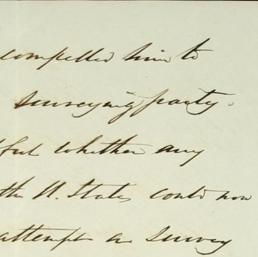 compelled him to
surveying party.
ful whether any
the U. States could now
attempt a survey